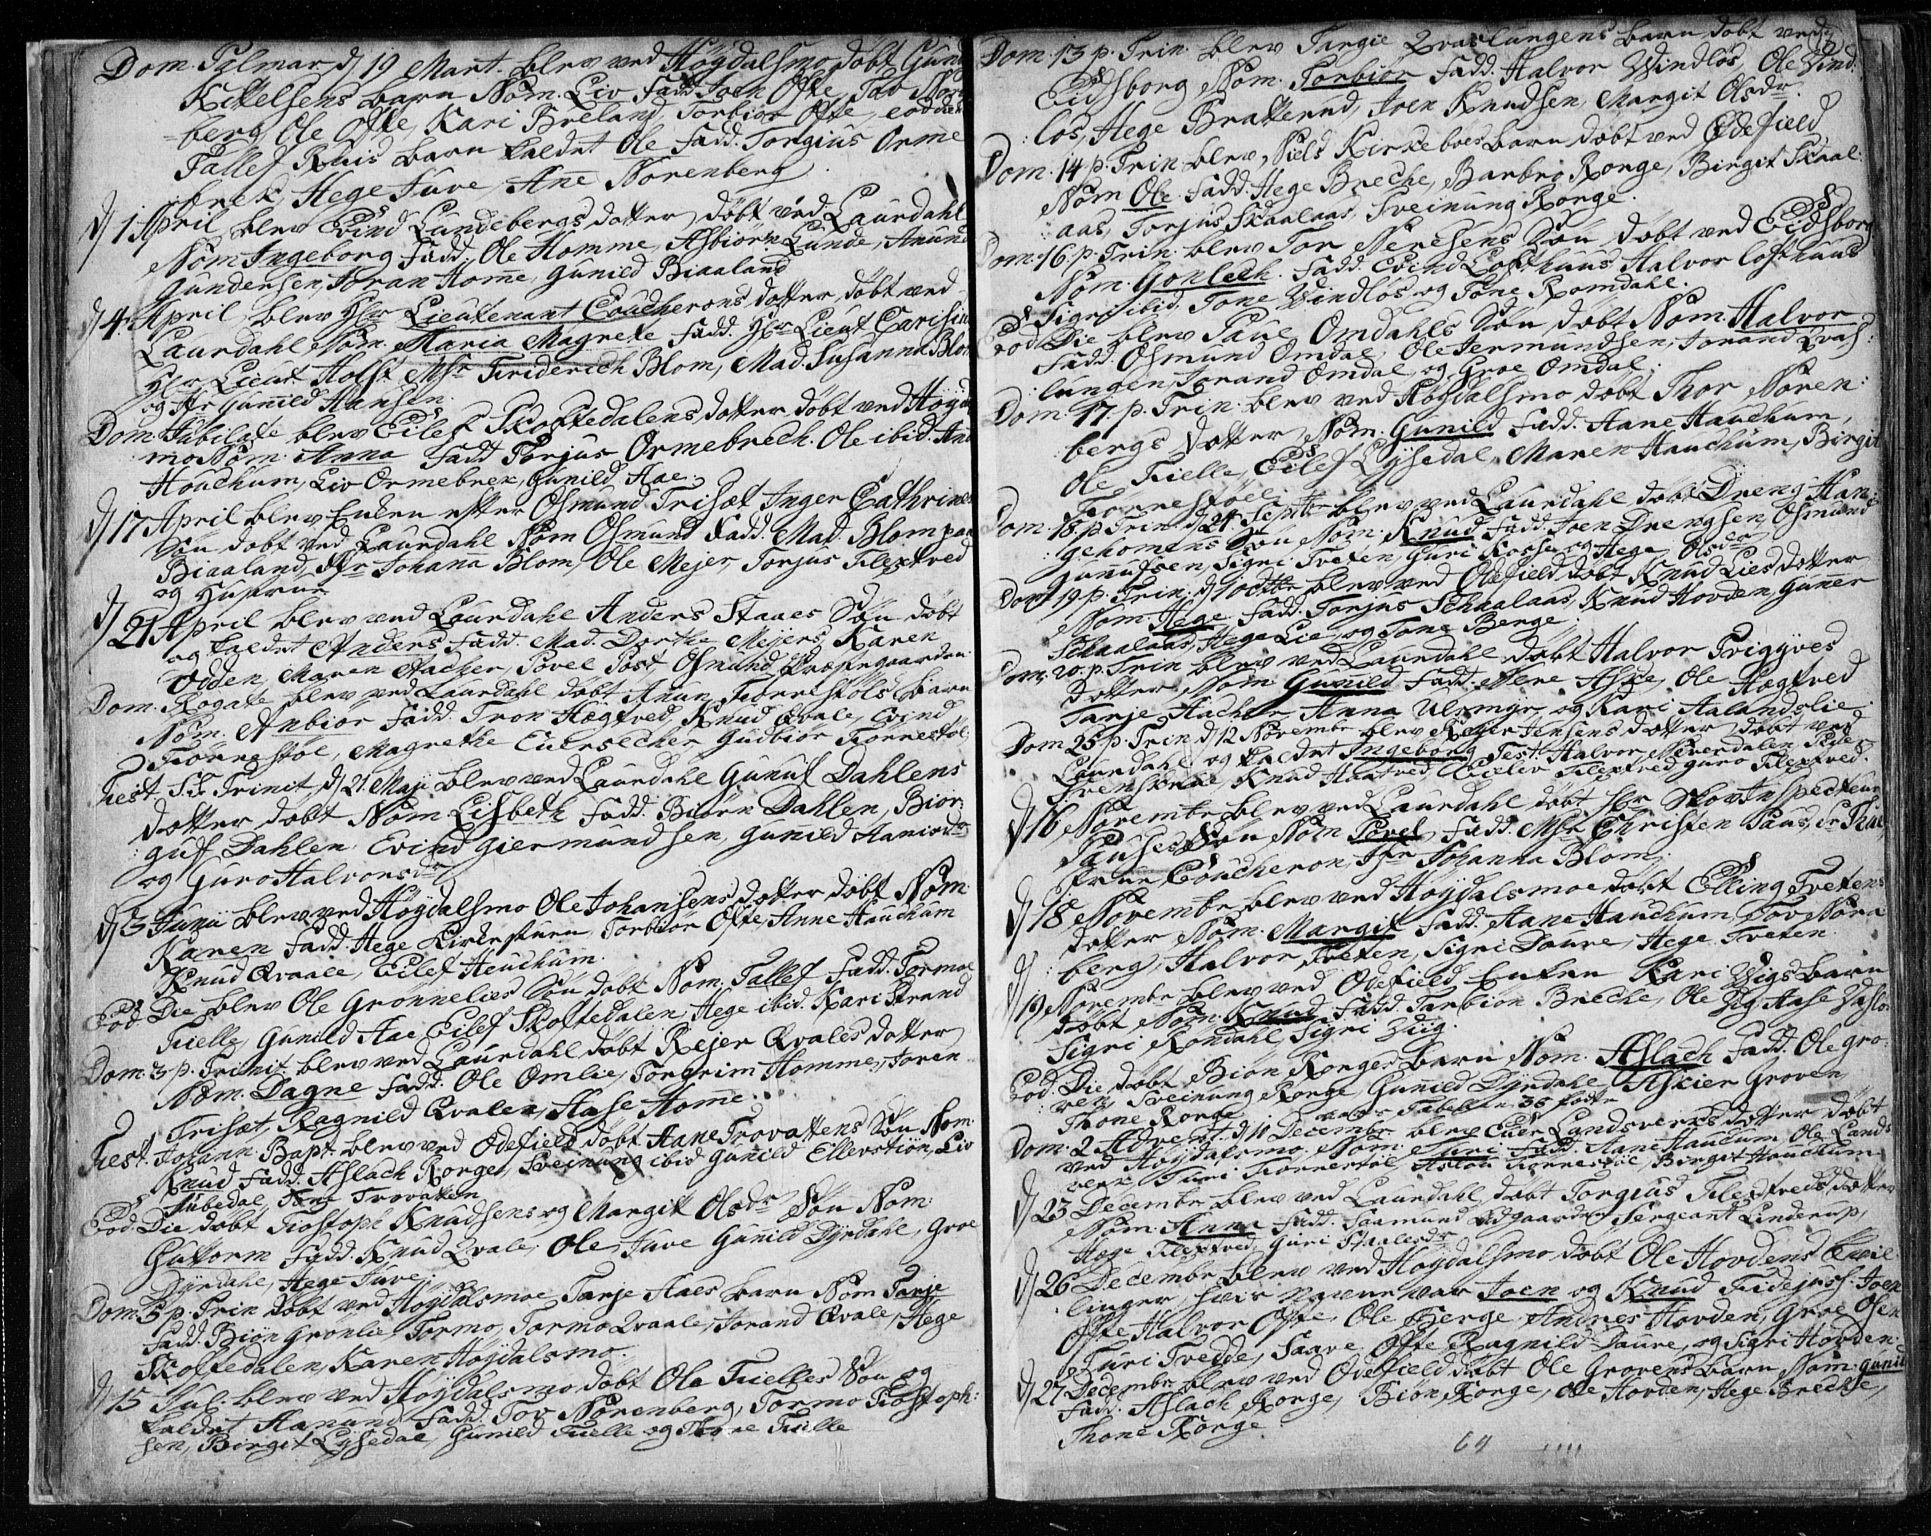 Dom. Palmar. d 19 Mart. blev ved Høgdalsmo døbt Gund
Kittelsens barn Nom. Liv Fadd. Joen Ofte, Tov Noren
berg Ole Ofte, Kari Breland, Torbiør Ofte, eod die
Tallef Ruis barn kaldet Ole Fadd. Torgius Orme
brek, Hege Juve, Ane Norenberg.
d 1 April blev Evind Lundebergs dotter døbt ved Laurdahl
Nom. Ingeborg Fadd. Ole Homme, Asbiørn Lunde, Anund
Gundersen, Joran Home, Gunild Biaaland
d 4 April blev Hr Lieutenant Coucherons dotter døbt ved
Laurdahl Nom. Maria Magrete Fadd. Hr Lieut Carisius
Hr Lieut Holst Msr Friderich Blom, Mad. Susanna Blom
og Jfr Gunild Hansen.
Dom. Jubilate blev Eilef Skoftedalens dotter døbt ved Høgdals
mo Nom. Anna Fadd Torjus Ormebrech. Ole ibid. Ane
Houchum, Liv Ormebrek, Gunild Aae.
d 17 April blev Enken efter Osmund Trisæt Inger Cathrines
Søn døbt ved Laurdahl Nom Osmund Fadd. Mad. Blom paa
Biaaland, Jfr Johanna Blom, Ole Mejer Torjus Tilextved
og Hustrue
d 21 April blev ved Laurdahl Anders Staaes Søn døbt
og kaldet Anders Fadd. Mad. Dorthe Mejers, Karen
Odden, Maren Aacher, Povel Post Osmund Præstegaarden
Dom. Rogate blev ved Laurdahl døbt Anun Tiørrestøls barn
Nom. Anbiør Fadd. Tron Hægtved, Knud Qvale, Evind
Tiørrestøl, Magrethe Eiersecker Gudbiør Tiørrestøl.
Fest. S.S. Trinit. d 21 Maji blev ved Laurdahl Gunuf Dahlens
dotter døbt Nom Lisbeth Fadd. Biørn Dahlen, Bior
guf Dahlen Evind Giermundsen, Gunild Aanisdr
og Guro Halvorsdr
d 3 Junii blev ved Høgdalsmo Ole Johansens dotter døbt Nom.
Karen Fadd. Hege Kirkestuen, Torbiør Ofte, Anne Hauchum
Knud Qvaale, Eilef Heuchum.
Eod. Die blev Ole Grønnelies Søn døbt Nom. Tallef Fadd. Tormoe
Tielle, Gunild Aae Eilef Skoftedalen, Hege ibid. Kari Strand
Dom. 3 p. Trinit. blev ved Laurdahl døbt Rejer Qvales dotter
Nom. Dagne Fadd. Ole Omlie, Torgrim Homme, Joren
Trisæt, Ragnild Qvalen, Aase Home.
Fest. Johann Bapt. blev ved Ødefield døbt Aane Trovattens Søn Nom.
Knud Fadd. Aslach Rorge, Sveinung ibid Gunild Ellerstiøn, Liv
Aubedal, Tone Trovatten
Eod. Die døbt Tiostoph Knudsens og Margit Olsdr Søn Nom.
Guttorm Fadd. Knud Qvale, Ole Juve Gunild Dyrdahl, Groe
Dyrdahl, Hege Juve.
Dom. 5 p. Trin døbt ved Høgdalsmoe Tarje Aaes barn Nom Tarje
Fadd. Biøn Gronlie Tormo, Tormo Qvaale, Jorand Qvale, Hege
Skoftedalen, Karen Høgdalsmo.
d 15 Jul. blev ved Høgdalsmo døbt Ole Tielles Søn og
kaldet Aanund Fadd. Tov Nørenberg, Tormo Tiostoph:
sen, Birgit Lysedal, Gunild Tielle og Thone Tielle
Dom. 13 p. Trin. blev Targie Qvaslungens barn døbt ved
Eidsborg Nom. Torbiør Fadd. Halvor Vindlos, Ole Vind
los, Hege Brattend, Joen Knudsen, Margit Olsdr.
Dom. 14 p. Trin blev Niels Kirkeboes barn døbt ved Ødefield
Nom Ole. Fadd. Hege Breche, Barbro Rorge, Birgit Skaal
aas, Torjus Skaalaas, Sveinung Rorge.
Dom. 16 p. Trin. blev Tor Nerisens Søn døbt ved Eidsborg
Nom. Gonlech. Fadd. Evind Lofthuus Halvor Lofthuus
Sigri ibid. Tone Vindlos og Tone Romdahl.
Eod Die blev Tave Omdahls Søn døbt Nom. Halvor
Fadd. Osmund Omdal, Ole Jermundsen, Jorand Qvas:
lungen, Jorand Omdal og Groe Omdal.
Dom. 17 p. Trin. blev ved Høgdalsmo døbt Thor Noren:
bergs dotter, Nom. Gunild Fadd. Aane Hauchum,
Ole Tielle, Eilef Lysedal, Maren Hauchum, Birgit
Tiørrestøel.
Dom. 18 p. Trin. d 24 Septbr blev ved Laurdahl døbt Dreng Han
gehomens Søn Nom. Knud Fadd. Joen Drengsen, Osmund
Gunufsen, Sigri Tveten, Guri Kosse og Hege Olsdr
Dom 19 p. Trin. d 1 octbr blev ved Ødefield døbt Knud Lies dotter
Nom. Hege. Fadd. Torjus Schaalaas, Knud Hovden, Guner
Schaalaas, Hege Lie, og Tone Berge.
Dom. 20. p. Trin blev ved Laurdahl døbt Halvor Prigyves
dotter Nom. Gunild Fadd. Aslach Ole Hægtved
Tarje Aacher Anna Ulsmyr og Kari Aalandslie.
Dom. 23 p. Trin. d 12 Novembr blev Rejer Jensens dotter døbt ved
Laurdahl og kaldet Ingeborg Test. Halvor Neverdalen, Peder
Svenskeroe, Knud Haatved, Eilev Tilextved Guro Tilextved.
d 16 Novembr blev ved Laurdahl døbt Hr Skov Inspecteur
Pauses Søn Nom Povel. Fadd. Msr Christen Paus, Sr Thue
Frue Coucheron, Jfr Johanna Blom.
d 18 Novembr blev ved Høgdalsmoe døbt Elling Tvetens
dotter Nom. Margit Fadd. Aane Hauchum, Tov Nøre
berg, Halvor Tveten, Sigri Saure, Hege Tveten.
d 19 Novembr blev ved Ødefield Enken Kari Vigs barn
døbt Nom. Knud. Fadd. Tarbiøn Breche, Ole Vig Aase Vaslo
Sigri Romdahl, Sigri Viig.
Eod. Die døbt Biøn Rorges barn Nom. Aslach Fadd. Ole Gro
ven, Sveinung Rorge Gunild Dyrdahl, Askier Groven
Thone Rorge. Tabell 36 fødte
Dom. 2 Advent. d 10 Decembr blev Eivr Landsverks dotter døbt
ved Høgdalsmo, Nom. Turi Fadd. Aane Hauchum Ole Lands
verk Turi Tiørrestøl Aslou Tiørrestøl, Birgit Hauchum.
d 23 Decembr blev ved Laurdahl døbt Torgius Tilextveds dotter
Nom. Anna Fadd. Saamund Udgaarden Sergeant Linderup,
Hege Tilextved Guri Staalesdr
d 26 Decembr blev ved Høgdalsmo døbt Ole Hovdens tvil
linger hvis navne var Joen og Knud Fidejuss. Joen
Ofte Halvor Ofte, Ole Berge Andres Hovden, Groe Ofen
Turi Tvedde, Saave Ofte Ragnild Saure, og Sigri Hovden.
d 27 Decembr blev ved Ødefield døbt Ole Grovens barn Nom. Gunild
Fadd. Aslach Rorge, Biøn Rorge, Ole Hovden, Hege Breche,
Thone Rorge.
64